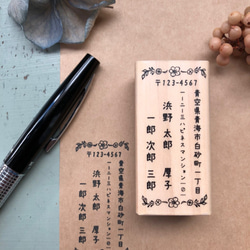 〒123-4567
青空県青海市白砂町一丁目
一ー二ー三ハピネスマンション一〇一
浜野 太郎 厚子
一郎 次郎 三郎
〒123-4567
青空県青海市白砂町一丁目
一ー二ー三ハピネスマンション
浜野 太郎 厚子
一郎 次郎 三郎